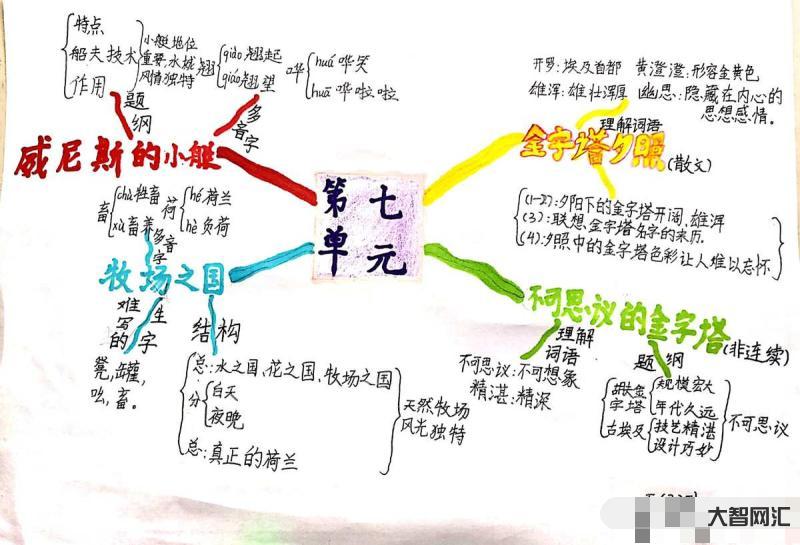 第七
单元
威尼斯的小艇
题纲
特点
船夫技术
作用
小艇地位
重要,水城
风情独特
多音字
翘
qiào 翘起
qiáo 翘望
哗
huá 哗笑
huā 哗啦啦
金字塔夕照(散文)
理解词语
开罗:埃及首都 黄澄澄:形容金黄色
雄浑:雄壮浑厚 幽思:隐藏在内心的
思想感情。
(1-2):夕阳下的金字塔开阔,雄浑
(3):联想金字塔名字的来历.
(4):夕照中的金字塔色彩让人难以忘怀
牧场之国
多音字
畜
chù 牲畜
xù 畜养
荷
hé 荷兰
hè 负荷
难写的
生字
凳,罐,
吆,畜。
结构
总:水之国、花之国、牧场之国
分
白天
夜晚
总:真正的荷兰
天然牧场
风光独特
不可思议的金字塔(非连续)
理解
词语
不可思议:不可想象
精湛:精深
题纲
胡夫金
字塔
规模宏大
年代久远
古埃及
技艺精湛
设计巧妙
不可思议
大智网汇